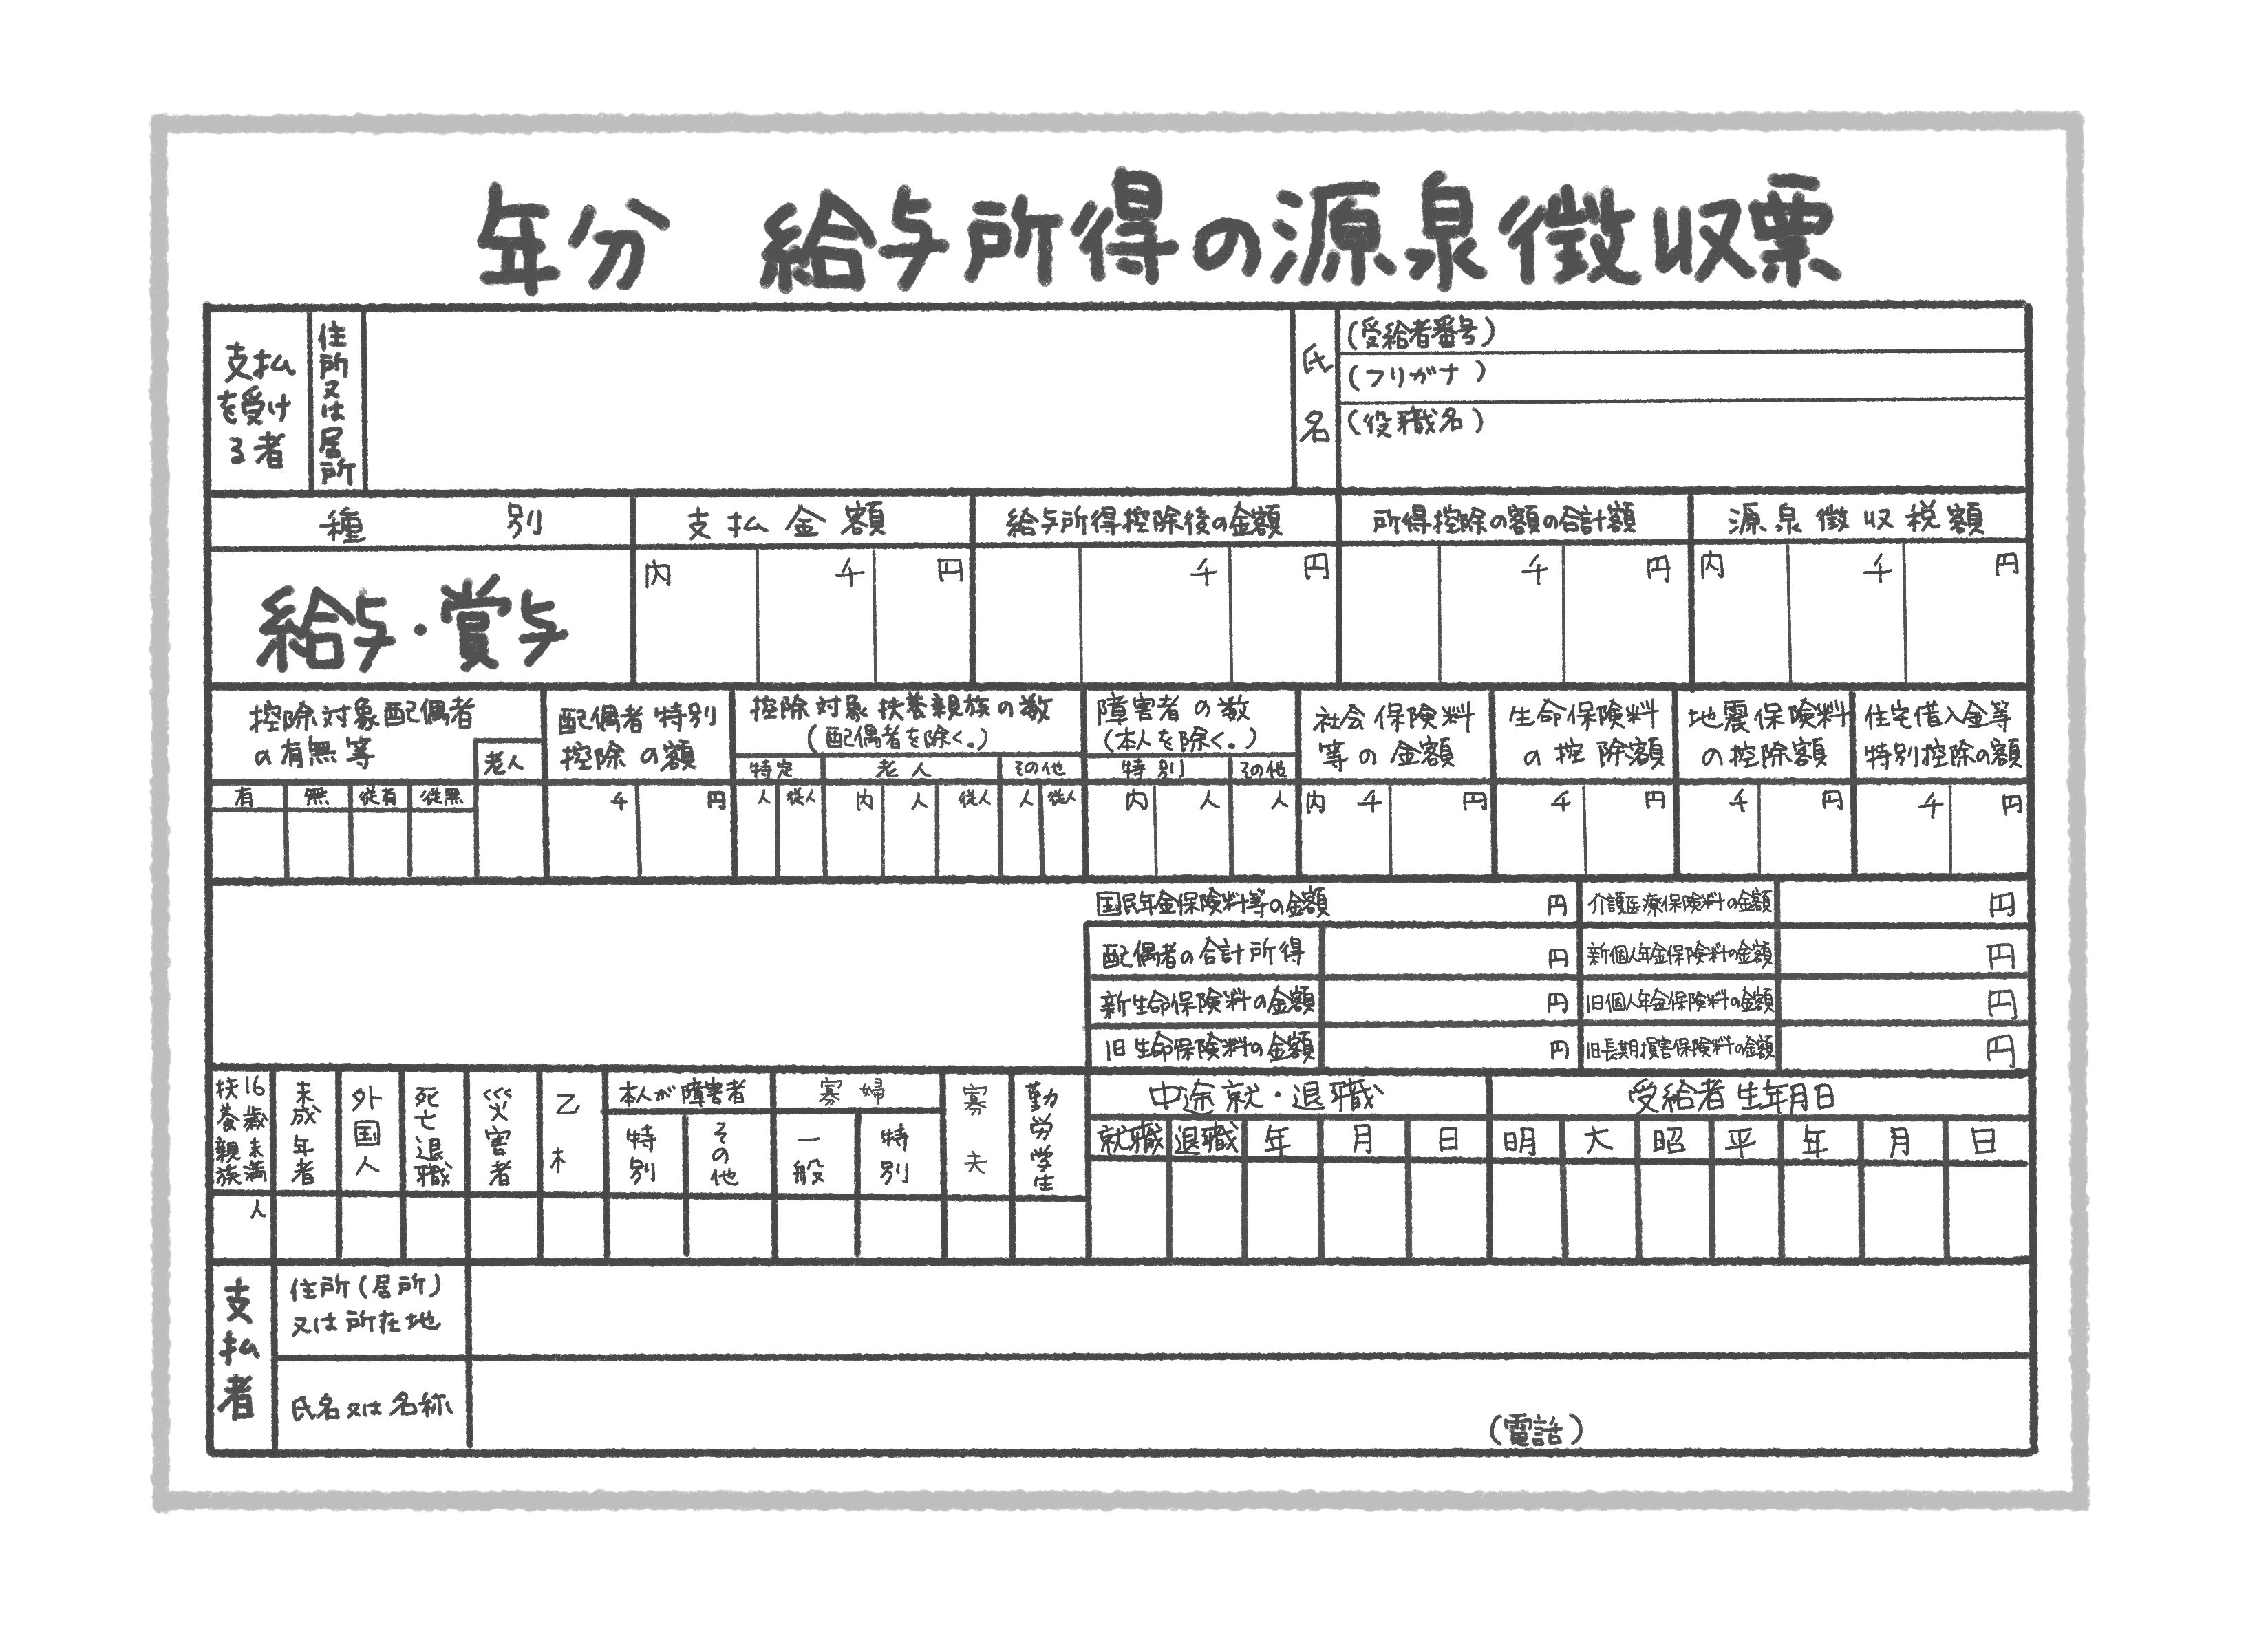 年分 給与所得の源泉徴収票
支払
を受け
る者
住所又は居所
氏名
(受給者番号)
(フリガナ)
(役職名)
種 別
支払金額
給与所得控除後の金額
所得控除の額の合計額
源泉徴収税額
給与・賞与
内 千 円
千 円
千 円
内 千 円
控除対象配偶者
の有無等
老人
配偶者特別
控除の額
控除対象扶養親族の数
(配偶者を除く。)
障害者の数
(本人を除く。)
社会保険料
等の金額
生命保険料
の控除額
地震保険料
の控除額
住宅借入金等
特別控除の額
特定 老人 その他
特別 その他
有 無 従有 従無
千 円
人 従人 内 人 従人 人 従人
内 人 人
内 千 円
千 円
千 円
千 円
国民年金保険料等の金額 円
介護医療保険料の金額 円
配偶者の合計所得 円
新個人年金保険料の金額 円
新生命保険料の金額 円
旧個人年金保険料の金額 円
旧生命保険料の金額 円
旧長期損害保険料の金額 円
16歳未満
扶養親族
未成年者
外国人
死亡退職
災害者
乙
本人が障害者
特別
その他
寡婦
一般
特別
寡夫
勤労学生
中途就・退職
受給者生年月日
就職 退職 年 月 日 明 大 昭 平 年 月 日
人
支払者
住所(居所)
又は所在地
氏名又は名称
(電話)